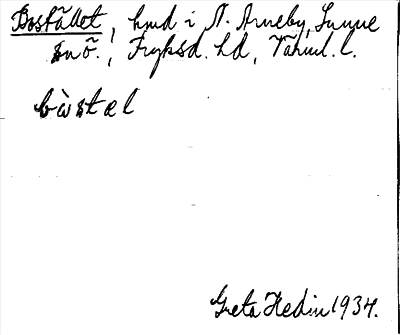 Bostället, hmd i N. Arneby, Sunne
snö., Fryksd. hd, Värml. l.
bòstæl
Greta Hedin 1934.